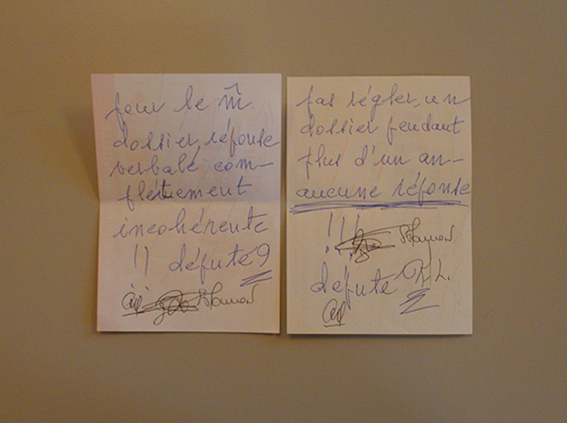 pour le m̃
dossier, réponse
verbale com-
plétement
incohérente
!! députe 9
pas régler, un
dossier pendant
plus d'un an-
aucune réponse
!!!
depute